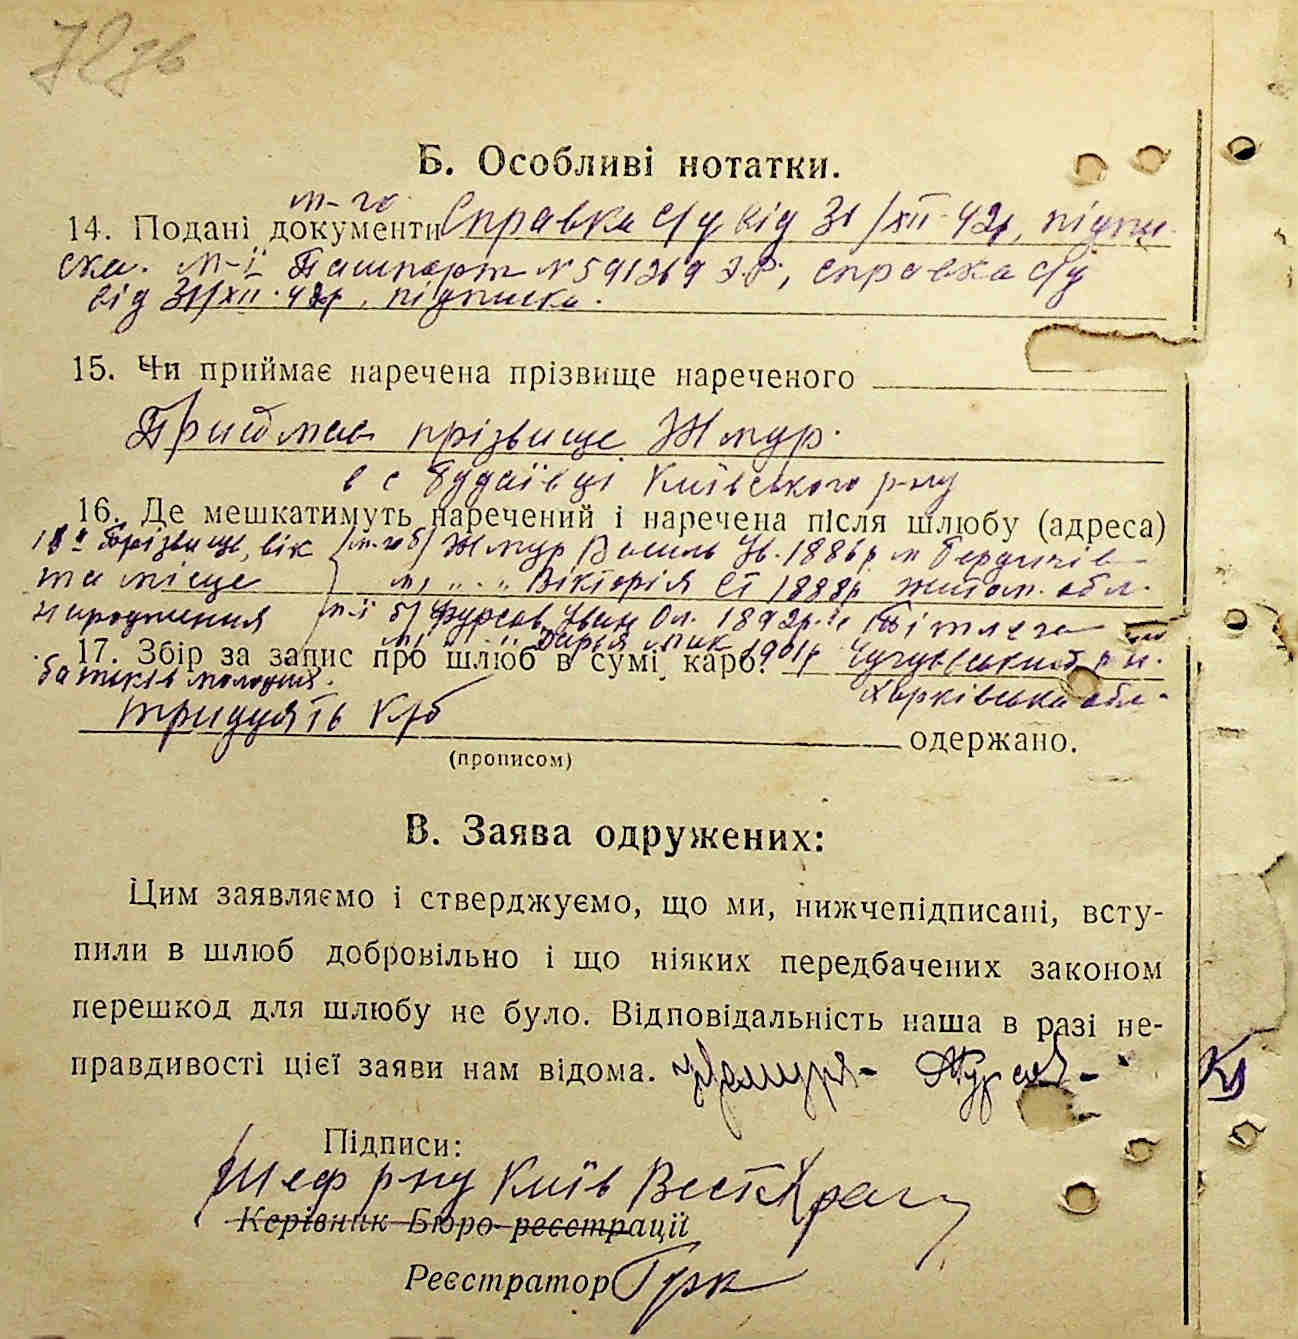 Б. Особливі нотатки.
м-го
14. Подані документи Справка с/у від 31/XII-42р, підпи-
ска. м-ї Пашпорт № 591269 , справка с/у
від 31/XII-42р, підписка.
15. Чи приймає наречена прізвище нареченого
Приймає прізвище Жмур.
в с Будаївці Київського р-ну
16. Де мешкатимуть наречений і наречена після шлюбу (адреса)
18а Прізвище, вік м-го б) Жмур Василь Ів. 1886р м Бердичів
та місце м) " " Вікторія Ст 1888р Житом. обл.
народження м-ї б) Фурсов Іван Ол. 1892р.
17. Збір за запис про шлюб в сумі карб. м) Дар'я Мик 1901р Чугуївський р-н.
батьків молодих. Харківська обл.
тридцять крб одержано.
(прописом)
В. Заява одружених:
Цим заявляємо і стверджуємо, що ми, нижчепідписані, всту-
пили в шлюб добровільно і що ніяких передбачених законом
перешкод для шлюбу не було. Відповідальність наша в разі не-
правдивості цієї заяви нам відома.
Підписи:
Шеф р-ну Київ Вест
Керівник Бюро реєстрації
Реєстратор